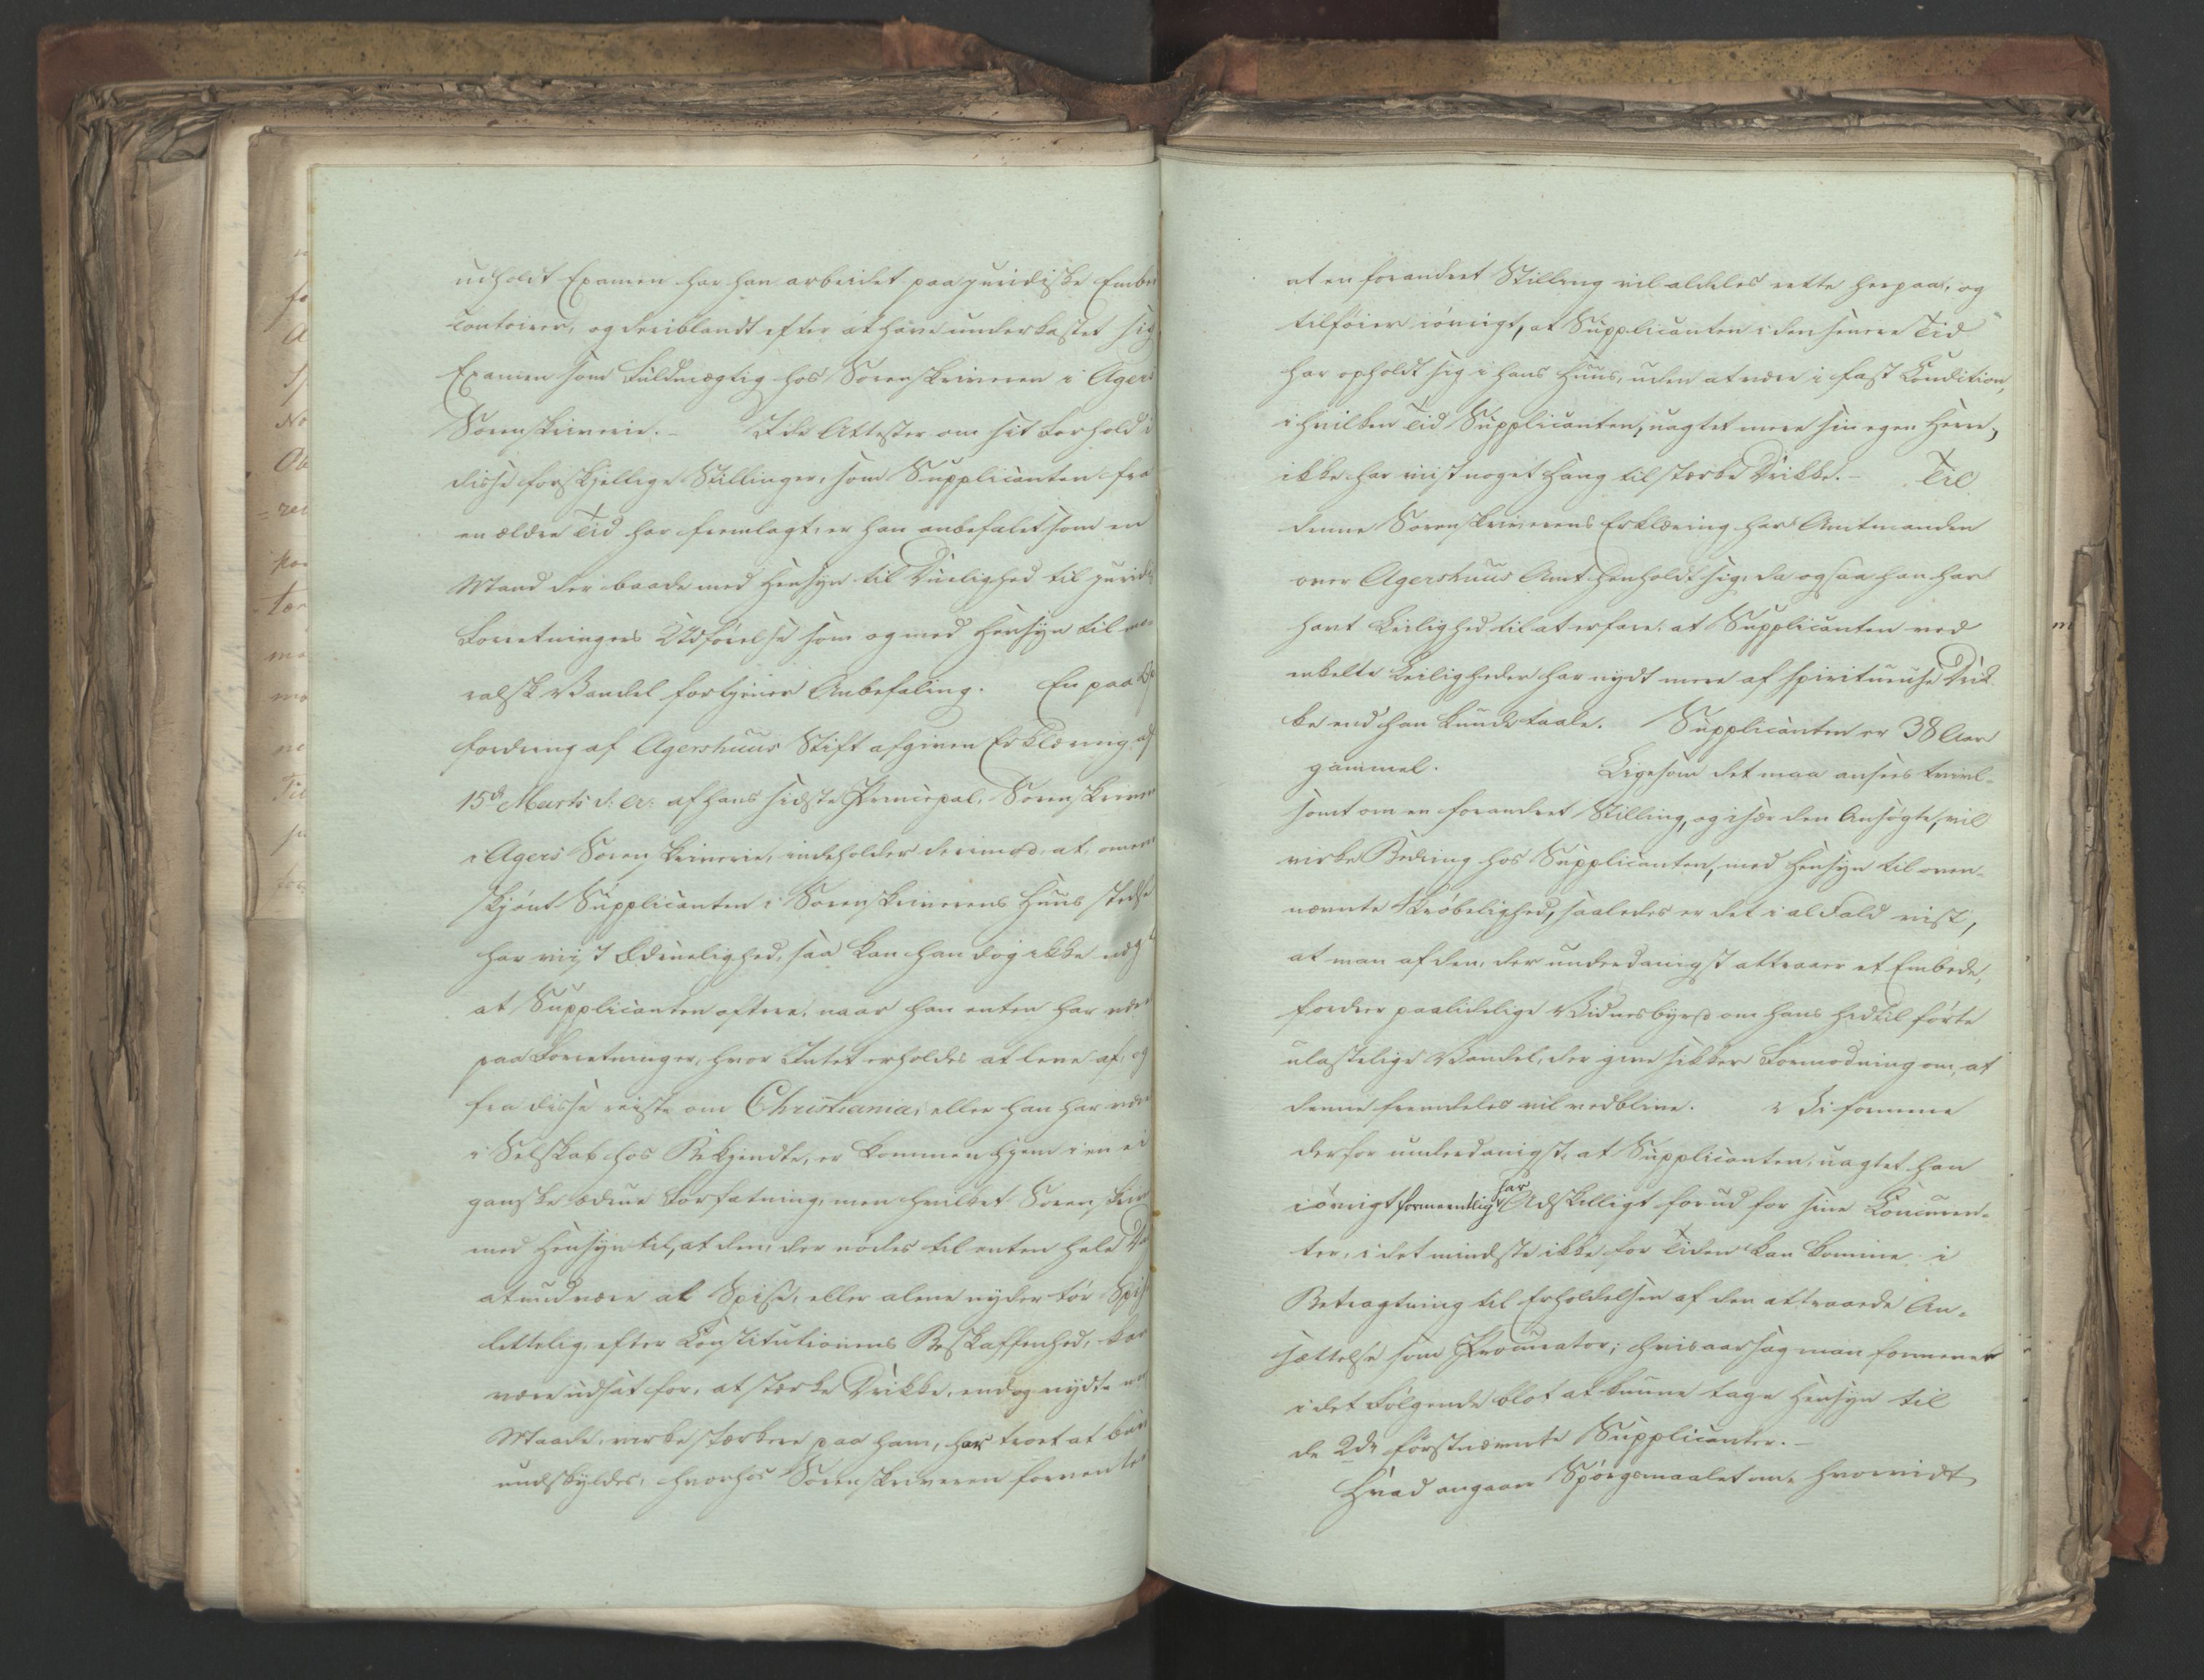 udholdt Examen har han arbeidet paa juridiske Embe
contoirer, og deriblandt efter at have underkastet sig
Examen som Fuldmægtig hos Sorenskriveren i Agers
Sorenskriverie. – I de Attester om sit Forhold i
disse forskjellige Stillinger, som Supplicanten fra
en ældre Tid har fremlagt, er han anbefalet som en
Mand der baade med Hensyn til Duelighed til juridi
Forretningers Udførelse som og med Hensyn til mo
ralsk Vandel fortjener Anbefaling. En paa
fordring af Agershuus Stift afgiven Erklæring af
15d Marts d: A: af hans sidste Principal, Sorenskriver
i Agers Sorenskriverie, indeholder derimod, at, omen
skjönt Supplicanten i Sorenskriverens Huus stedse
har viist Ædruelighed, saa kan han dog ikke
at Supplicanten oftere, naar han enten har være
paa Forretninger, hvor Intet erholdes at leve af, og
fra disse reiste om Christiania, eller han har være
i Selskab hos Bekjendte, er kommen hjem i en ei
ganske ædrue Forfatning, men hvilket Sorenskriv
med Hensyn til, at den, der nødes til enten hele Da
at undvære al Spise, eller alene nyder tør Spis
lettelig, efter Constitutionens Beskaffenhed, kan
være udsat for, at stærke Drikke, endog nydte
Maade, virke stærkere paa ham, har troet at
undskyldes, hvorhos Sorenskriveren forventer
at en forandret Stilling vil aldeles rette herpaa, og
tilføier iøvrigt, at Supplicanten i den senere Tid
har opholdt sig i hans Huus, uden at være i fast Condition,
i hvilken Tid Supplicanten, uagtet mere sin egen Herre,
ikke har viist noget Hang til stærke Drikke. – Til
denne Sorenskriverens Erklæring har Amtmanden
over Agershuus Amt henholdt sig, da ogsaa han har
havt Leilighed til at erfare, at Supplicanten ved
enkelte Leiligheder har nydt mere af spirituøse Drik
ke end han kunde taale. Supplicanten er 38 Aar
gammel. Ligesom det maa ansees tvivl-
somt om en forandret Stilling, og især den Ansøgte, vil
virke Bedring hos Supplicanten, med Hensyn til oven-
nævnte Skrøbelighed, saaledes er det i al Fald vist,
at man af den, der underdanigst attraaer et Embede,
fordrer paalidelige Vidnesbyrd om hans hidtil førte
ulastelige Vandel, der give sikker Formodning om, at
denne fremdeles vil vedblive. Vi formene
derfor underdanigst, at Supplicanten, uagtet han
iøvrigt formeentlig har Adskilligt forud for sine Concurren-
ter, i det mindste ikke for Tiden kan komme i
Betragtning til Erholdelsen af den attraaede An-
sættelse som Procurator; hvisaarsag man formener
i det Følgende blot at kunne tage Hensyn til
de 2de førstnævnte Supplicanter. –
Hvad angaaer Spörgsmaalet om, hvorvidt